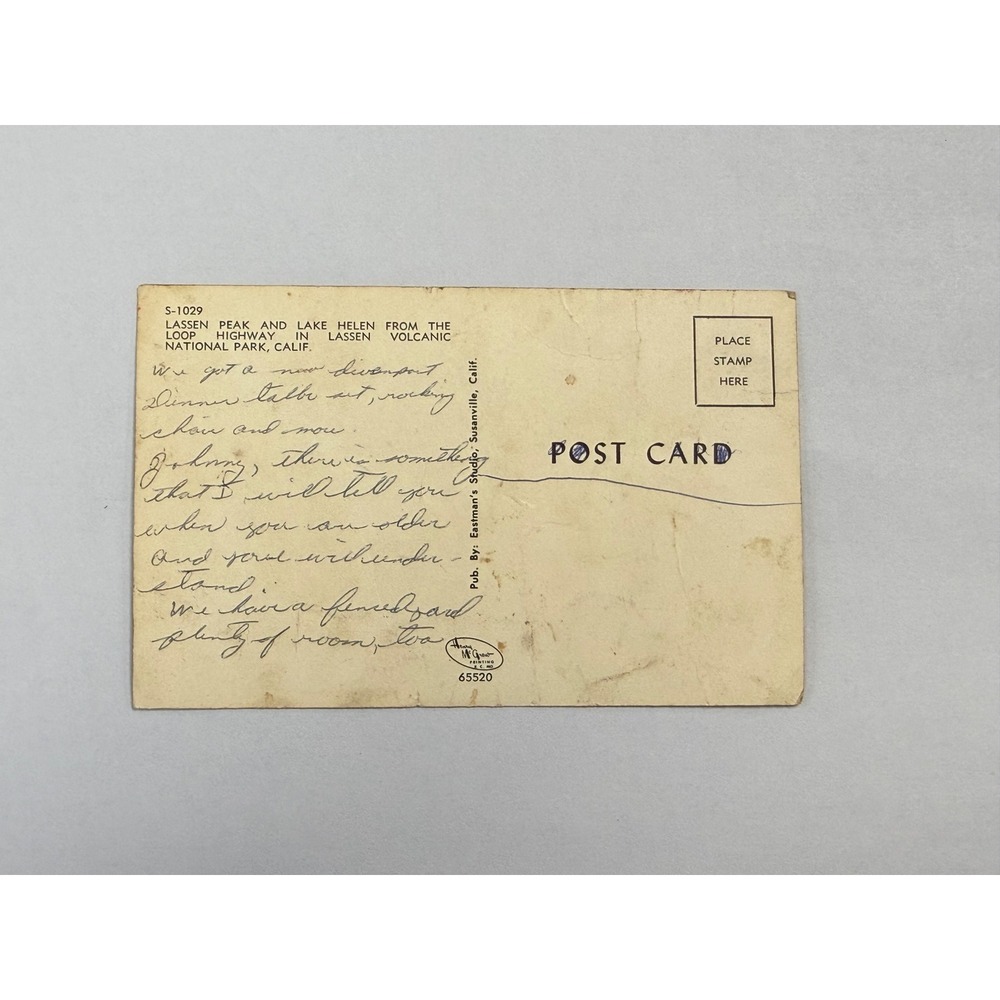 S-1029
LASSEN PEAK AND LAKE HELEN FROM THE
LOOP HIGHWAY IN LASSEN VOLCANIC
NATIONAL PARK, CALIF.
We got a new divenport
Dinner table set, rocking
chair and more.
Johnny, there is something
that I will tell you
when you are older
and you will under-
stand.
We have a fenced yard
plenty of room, too
Pub. By: Eastman's Studio, Susanville, Calif.
Henry
McGrew
PRINTING
K. C. MO
65520
POST CARD
PLACE
STAMP
HERE